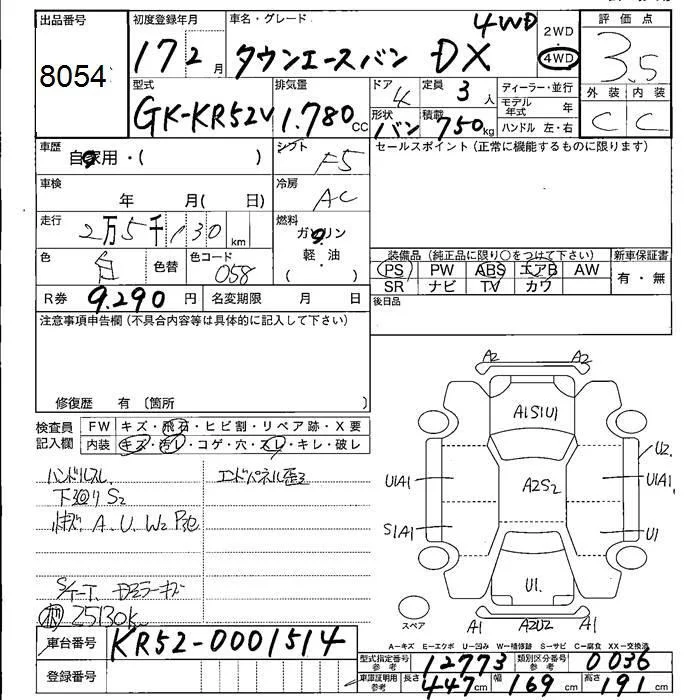 出品番号
8054
初度登録年月
17 2 月
車名・グレード
タウンエースバン DX 4WD
2WD
4WD
評価点
3.5
外装 内装
C C
型式
GK-KR52V
排気量
1.780 CC
ドア 4
定員 3 人
形状 バン
積載 750 kg
ディーラー・並行
モデル年式 年
ハンドル 左・右
車歴
自家用・( )
シフト
F5
セールスポイント(正常に機能するものに限ります)
車検
年 月( 日)
冷房
AC
走行
2万5千130 km
燃料
ガソリン
軽・油
( )
色
白
色替
色コード
058
装備品(純正品に限り○をつけて下さい)
PS PW ABS エアB AW
SR ナビ TV カワ
新車保証書
有・無
R券 9.290 円
名変期限 月 日
後日品
注意事項申告欄(不具合内容等は具体的に記入して下さい)
修復歴 有 〔箇所 〕
検査員記入欄
FW キズ・飛石・ヒビ割・リペア跡・X要
内装 キズ・汚レ・コゲ・穴・スレ・キレ・破レ
ハンドルスレ
エンドパネル歪ミ
下廻りS2
A.U.W2
25130K
A2 A2
A1S1U1
U2
U1A1
A2S2
U1A1
S1A1
U1
U1.
スペア
A1 A2U2 A1
A-キズ E-エクボ U-凹み W-補修跡 S-サビ C-腐食 XX-交換済
車台番号
KR52-0001514
型式指定番号参考
12773
類別区分番号参考
0036
登録番号
車庫証明用参考
長さ 447 cm
幅 169 cm
高さ 191 cm